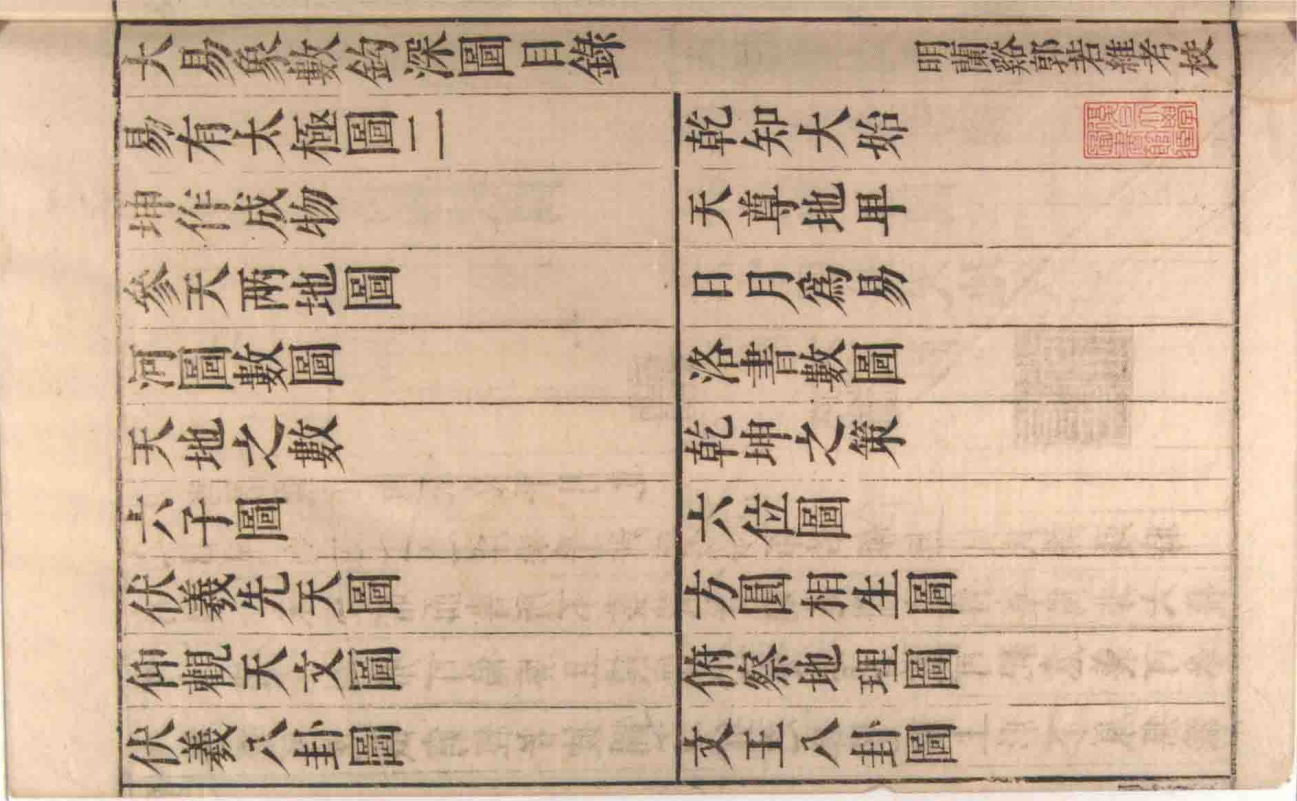 大易象數鈎深圖目錄 明蘭谿郭若維考校
易有太極圖二 乾知大始
坤作成物 天尊地卑
參天兩地圖 日月爲易
河圖數圖 洛書數圖
天地之數 乾坤之策
六子圖 六位圖
伏羲先天圖 方圓相生圖
仰觀天文圖 俯察地理圖
伏羲八卦圖 文王八卦圖